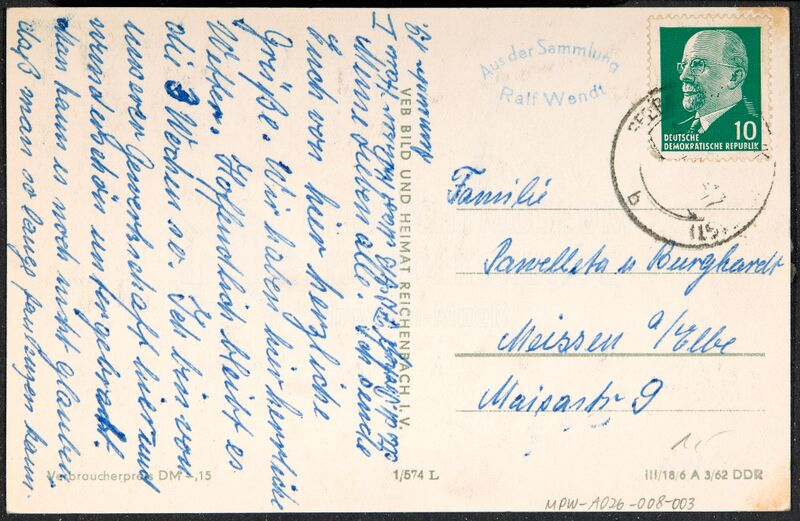 Meine Lieben alle. Ich sende
Euch von hier herzliche
Grüße. Wir haben hier herrliches
Wetter. Hoffentlich bleibt es
die 3 Wochen so. Ich bin von
unserer Gewerkschaft hier und
wunderschön untergebracht.
Man kann es noch nicht glauben
daß man so lange faulenzen kann.
VEB BILD UND HEIMAT REICHENBACH I. V.
Verbraucherpreis DM -,15
1/574 L
Aus der Sammlung
Ralf Wendt
10
DEUTSCHE
DEMOKRATISCHE REPUBLIK
b
Familie
Pawelleta u Burghardt
Meissen a/Elbe
Maisastr 9
III/18/6 A 3/62 DDR
MPW-A026-008-003